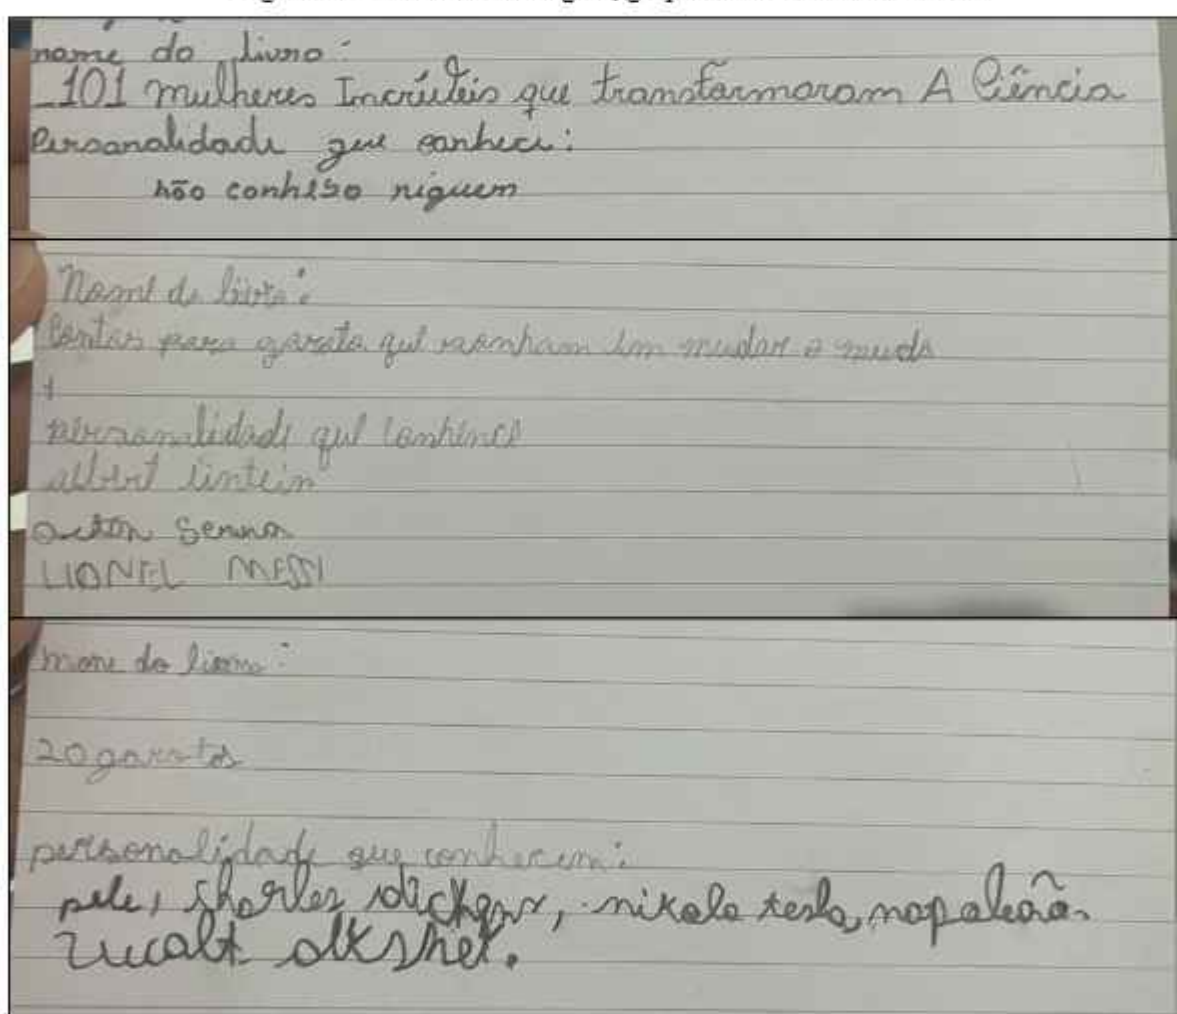 nome do livro:
101 mulheres Incríveis que transformaram A Ciência
Personalidade que conheci:
não conheso niguem
Nome do livro:
Contos para garota que sonham em mudar o mudo
personalidade que conhence
albert eintein
Senna
LIONEL MESSI
nome do livro:
20 garotos
personalidade que conhecem:
pele, sharles dickens, nikola tesla, napoleão